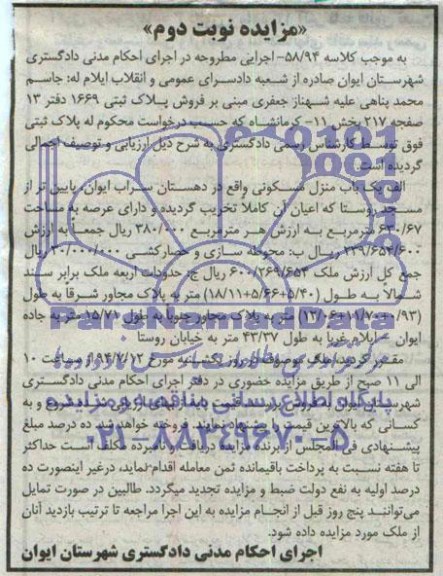 «مزایده نوبت دوم»
به موجب کلاسه ۵۸/۹۴- اجرایی مطروحه در اجرای احکام مدنی دادگستری
شهرستان ایوان صادره از شعبه دادسرای عمومی و انقلاب ایلام له: جاسم
محمد پناهی علیه شهناز جعفری مبنی بر فروش پلاک ثبتی ۱۶۶۹ دفتر ۱۳
صفحه ۲۱۷ بخش ۱۱- کرمانشاه که حسب درخواست محکوم له پلاک ثبتی
فوق توسط کارشناس رسمی دادگستری به شرح ذیل ارزیابی و توصیف اجمالی
گردیده است.
الف یک باب منزل مسکونی واقع در دهستان سراب ایوان، پایین تر از
مسجد روستا که اعیان آن کاملا تخریب گردیده و دارای عرصه به مساحت
۶۳۰/۶۷ مترمربع به ارزش هر مترمربع ۳۸۰/۰۰۰ ریال جمعاً به ارزش
۲۳۹/۶۵۴/۶۰۰ ریال ب: محوطه سازی و حصارکشی ۳۰/۰۰۰/۰۰۰ ریال
جمع کل ارزش ملک ۶۰۰/۲۶۹/۶۵۴ ریال ج: حدودات اربعه ملک برابر سند
شمالا به طول (۱۸/۱۱+۵/۶۶+۵/۴۰) متر به پلاک مجاور شرقا به طول
(۱۲/۰۶+۱۱/۷۰+۰/۹۳) متر به پلاک مجاور جنوبا به طول ۱۵/۷۱ متر به جاده
ایوان - ایلام غربا به طول ۴۳/۳۷ متر به خیابان روستا
مقرر گردید ملک موصوف در روز یکشنبه مورخ ۹۴/۷/۱۲ از ساعت ۱۰
الی ۱۱ صبح از طریق مزایده حضوری در دفتر اجرای احکام مدنی دادگستری
شهرستان ایوان به فروش برسد قیمت پایه از بهای ارزیابی شده شروع و به
کسانی که بالاترین قیمت را پیشنهاد نمایند. فروخته خواهد شد ده درصد مبلغ
پیشنهادی فی المجلس از برنده مزایده دریافت و نامبرده مکلف است حداکثر
تا هفته نسبت به پرداخت باقیمانده ثمن معامله اقدام نماید، درغیر اینصورت ده
درصد اولیه به نفع دولت ضبط و مزایده تجدید میگردد. طالبین در صورت تمایل
می‌توانند پنج روز قبل از انجام مزایده به این اجرا مراجعه تا ترتیب بازدید آنان
از ملک مورد مزایده داده شود.
اجرای احکام مدنی دادگستری شهرستان ایوان
ParsNamadData
پایگاه اطلاع رسانی مناقصه و مزایده
۰۲۱-۸۸۳۴۹۶۷۰-۵